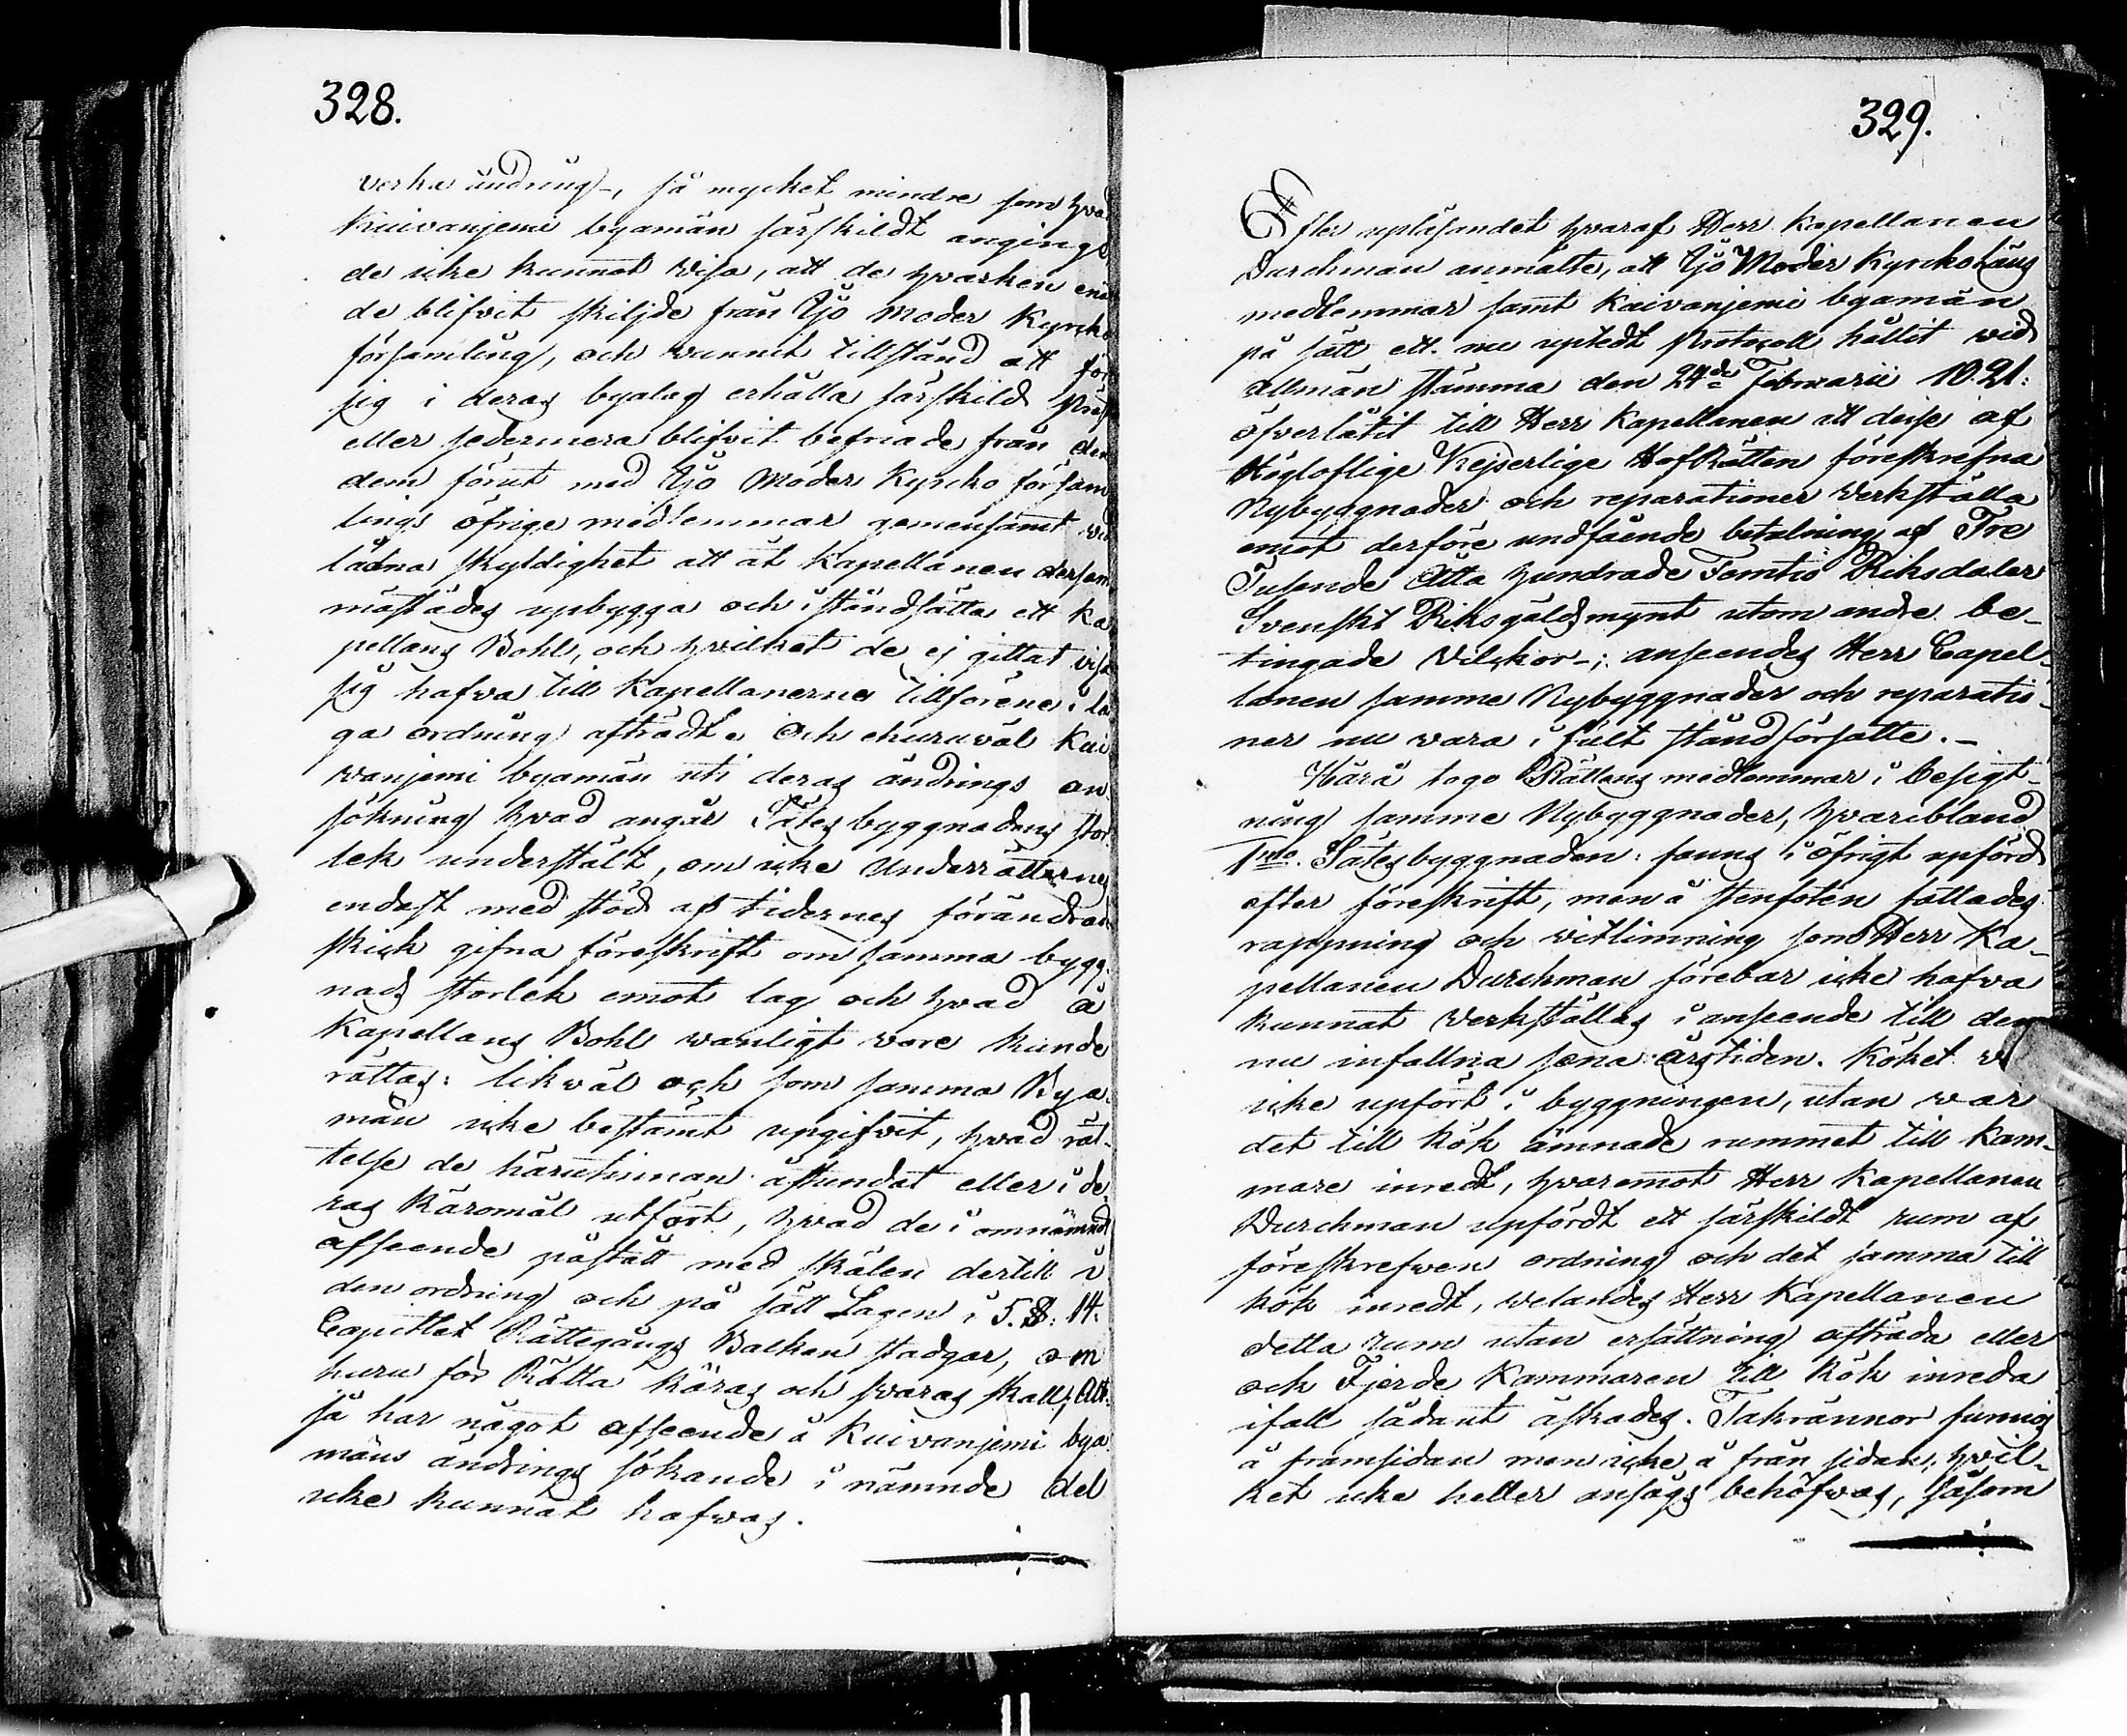 328.
verka ändring-, så mycket mindre som hvad
Kuivanjemi byamän särskildt angingo
de icke kunnat visa, att de hvarken en
de blifvit skiljde från Ijo moder Kyrko
församling, och vunnit tillstånd att för
sig i deras byalag erhålla särskild Präst
eller sedermera blifvit befriade från den
dem förut med Ijo Moder Kyrcko försam
lings öfrige medlemmar gemensamt
lådna skyldighet att åt Kapellanen dersam
mastädes upbygga och iståndsätta ett Ka
pellans Bohl, och hvilket de ej gittat visa
sig hafva till Kapellanerne tillförene i la
ga ordning afträdt. Och ehuruväl Kui
wanjemi byamän uti deras ändrings an
sökning hvad angår Sätesbyggnadens stor
lek underställt, om icke Underrätternes
endast med stöd af tidernes förändrade
skick gifna föreskrift om samma bygg
nads storlek emot lag och hvad å
Kapellans Bohl wanligt vore kunde
rättas: likväl och som samma Bya
män icke bestämt upgifvit, hvad rät-
telse de härutinnan åstundat eller i de
ras Käromål utfört, hvad de i omnämndt
afseende påstått med skälen dertill i
den ordning och på sätt Lagen i 5. §. 14.
Capitlet Rättegångs Balken stadgar, om
huru för Rätta käras och svaras skall; Allt
så har något afseende å Kuivanjemi bya
mäns ändrings sökande i nämnde del
icke kunnat hafvas.
329.
Efter upläsandet hvaraf Herr Kapellanen
Durchman anmälte, att Ijo Moder Kyrckolags
medlemmar samt Kuivanjemi byamän
på sätt ett nu uptedt Protocoll hållit wid
allmän stämma den 24de Februarii 1821:
öfverlåtit till Herr Kapellanen att desse af
Högloflige Kejserlige HofRätten föreskrefna
Nybyggnader och reparationer Verkställa
emot derföre undfående betalning af Tre
Tusende Åtta hundrade Femtio Riksdaler
Svenskt Riksgäldsmynt utom andre be-
tingade Vilckor-; anseendes Herr Capel-
lanen samme Nybyggnader och reparatio-
ner nu vara i fult ståndförsatte.-
Härå togo Rättens medlemmar i besigt-
ning samme Nybyggnader, hvaribland
1mo. Sätesbyggnaden: fanns i öfrigt upförd
efter föreskrift, men å stenfoten fattades
rappning och vitlimning som Herr Ka-
pellanen Durchman förebar icke hafva
kunnat Verkställas i anseende till den
nu infallna sena årstiden. Köket v
icke upfört i byggningen, utan war
det till kök ämnade rummet till kam-
mare inredt, hvaremot Herr Kapellanen
Durchman upfördt ett särskildt rum af
föreskrefwen ordning och det samma till
kök inredt, welandes Herr Kapellanen
detta rum utan ersättning afträda eller
ock Fjerde Kammaren till Kök inreda
ifall sådant äskades. Takrännor funnos
å framsidan men icke å från sidan, hvil-
ket icke heller ansågs behöfvas, såsom